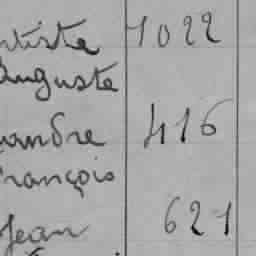 rtiste 1022
Auguste
xandre 416
François
Jean 621